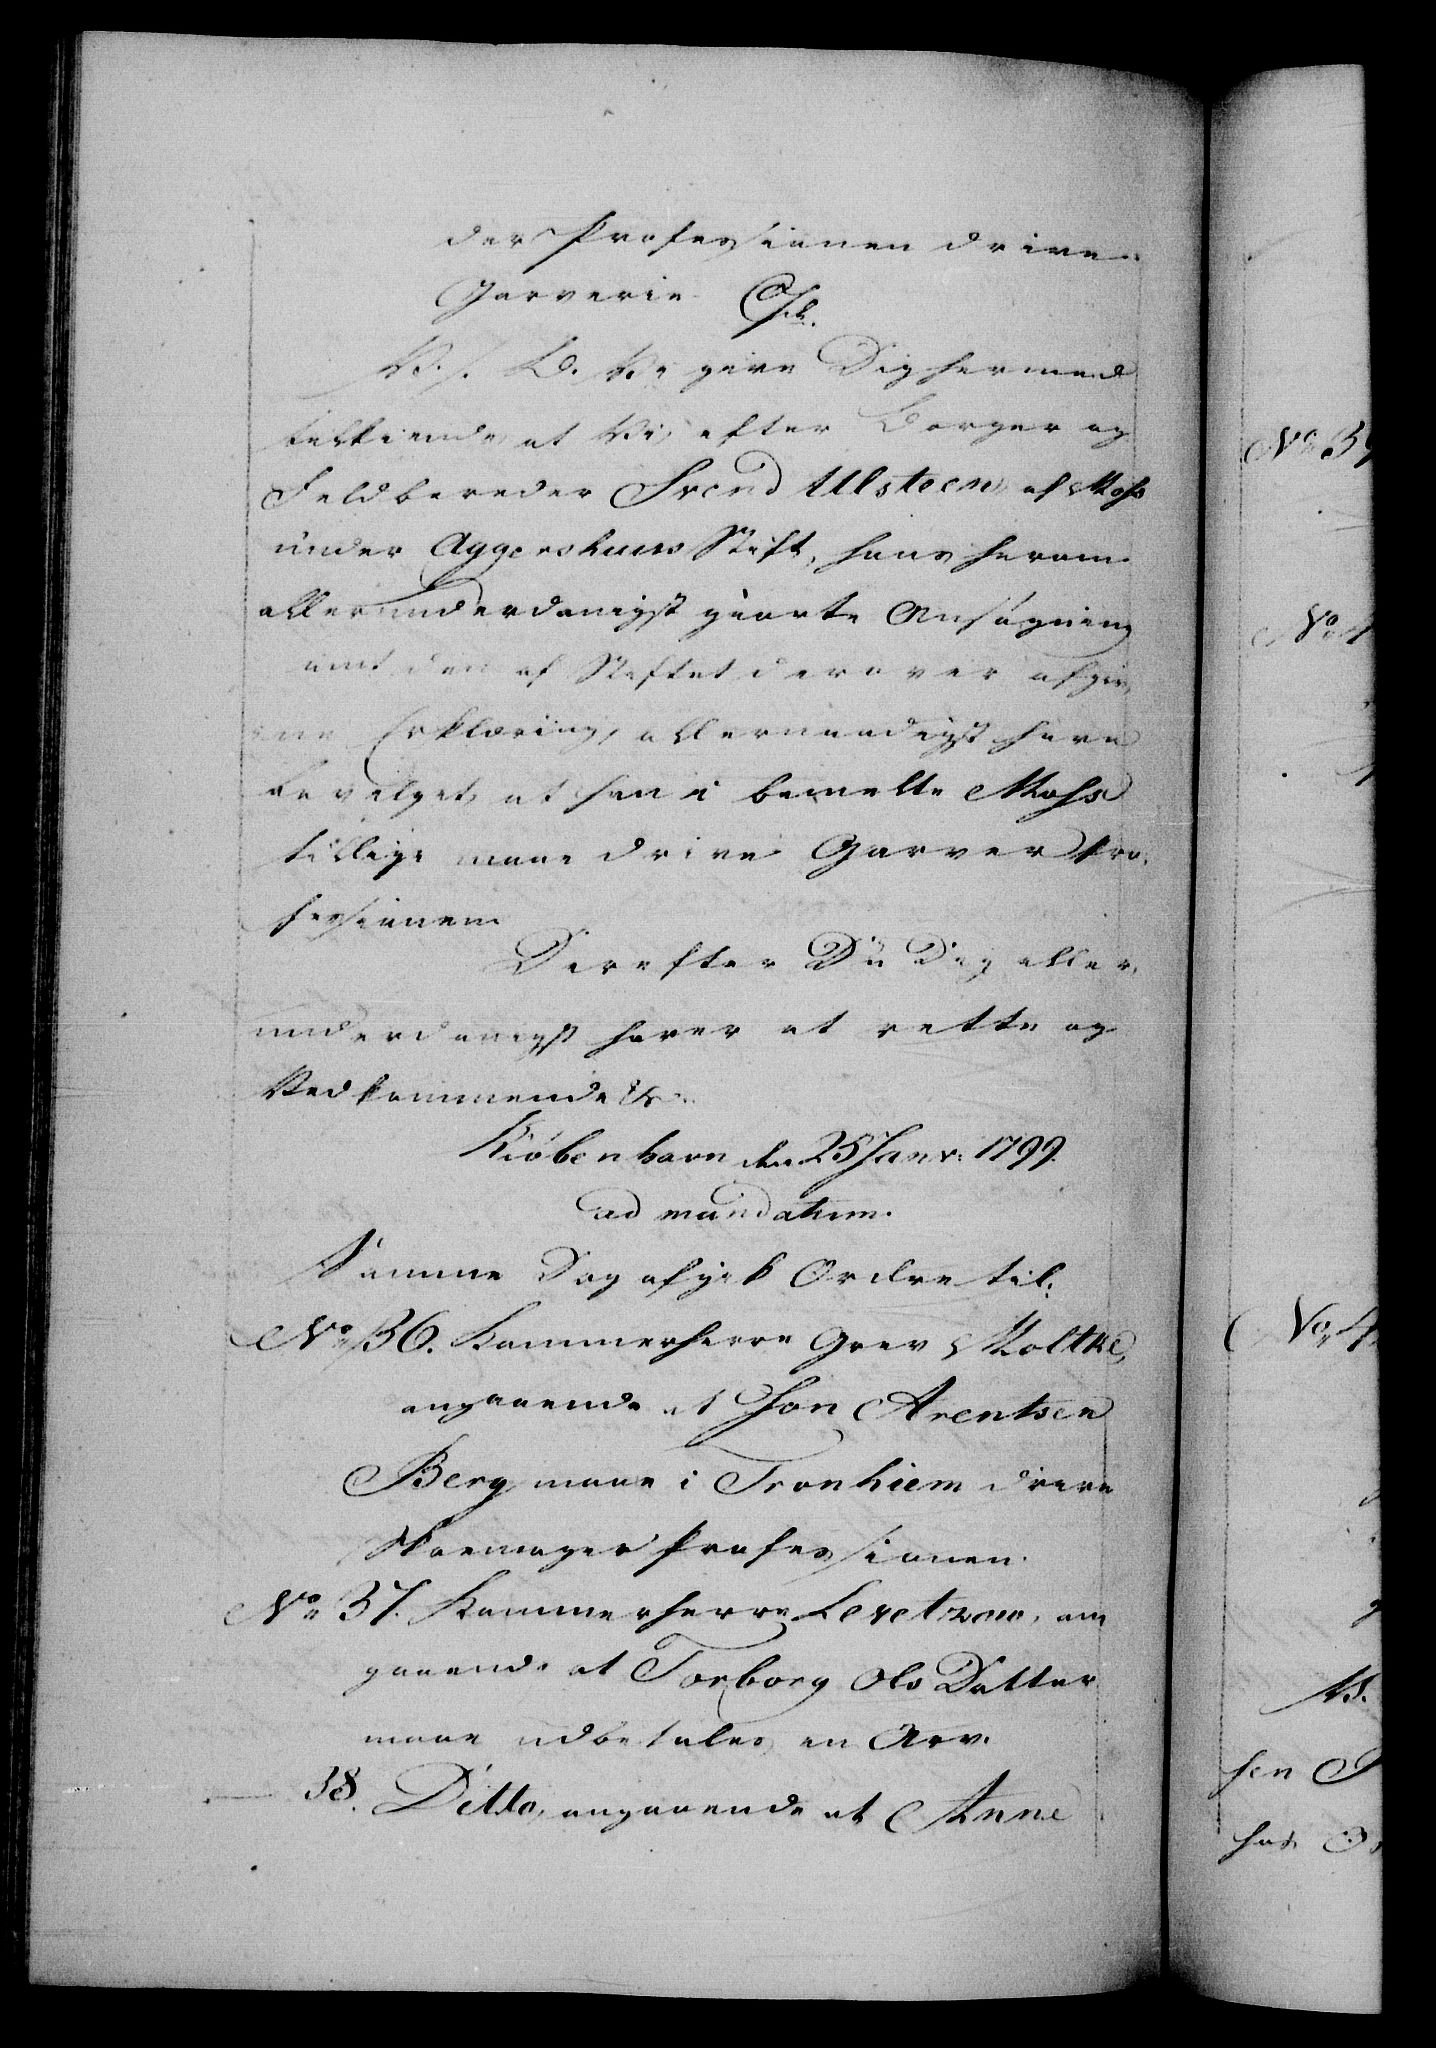 der Professionen drive
Garverie
V. G. T. Vi give Dig hermed
tilkiende, at Vi, efter Borger og
Feldbereder Svend Ulsteen af Moss
under Aggershuus Stift, hans herom
allerunderdanigst giorte Ansøgning
samt den af Stiftet derover afgiv,
ene Erklæring, allernaadigst have
bevilget, at han i bemelte Moss
tillige maae drive Garver Pro,
fessionen.
Derefter Du Dig aller,
underdanigst haver at rette og
Vedkommende &c.
Kiøbenhavn den 25 Janv: 1799.
ad mandatum.
Samme Dag afgik Ordre til:
No 36. Kammerherre Grev Moltke,
angaaende at Jon Arentsen
Berg maae i Tronhiem drive
Skoemager Professionen.
No 37. Kammerherre Levetzow, an
gaaende at Torborg Ols Datter
maae udbetales en Arv.
— 38. Ditto, angaaende at Anne
No 39
No 4
No 4
sen
hos